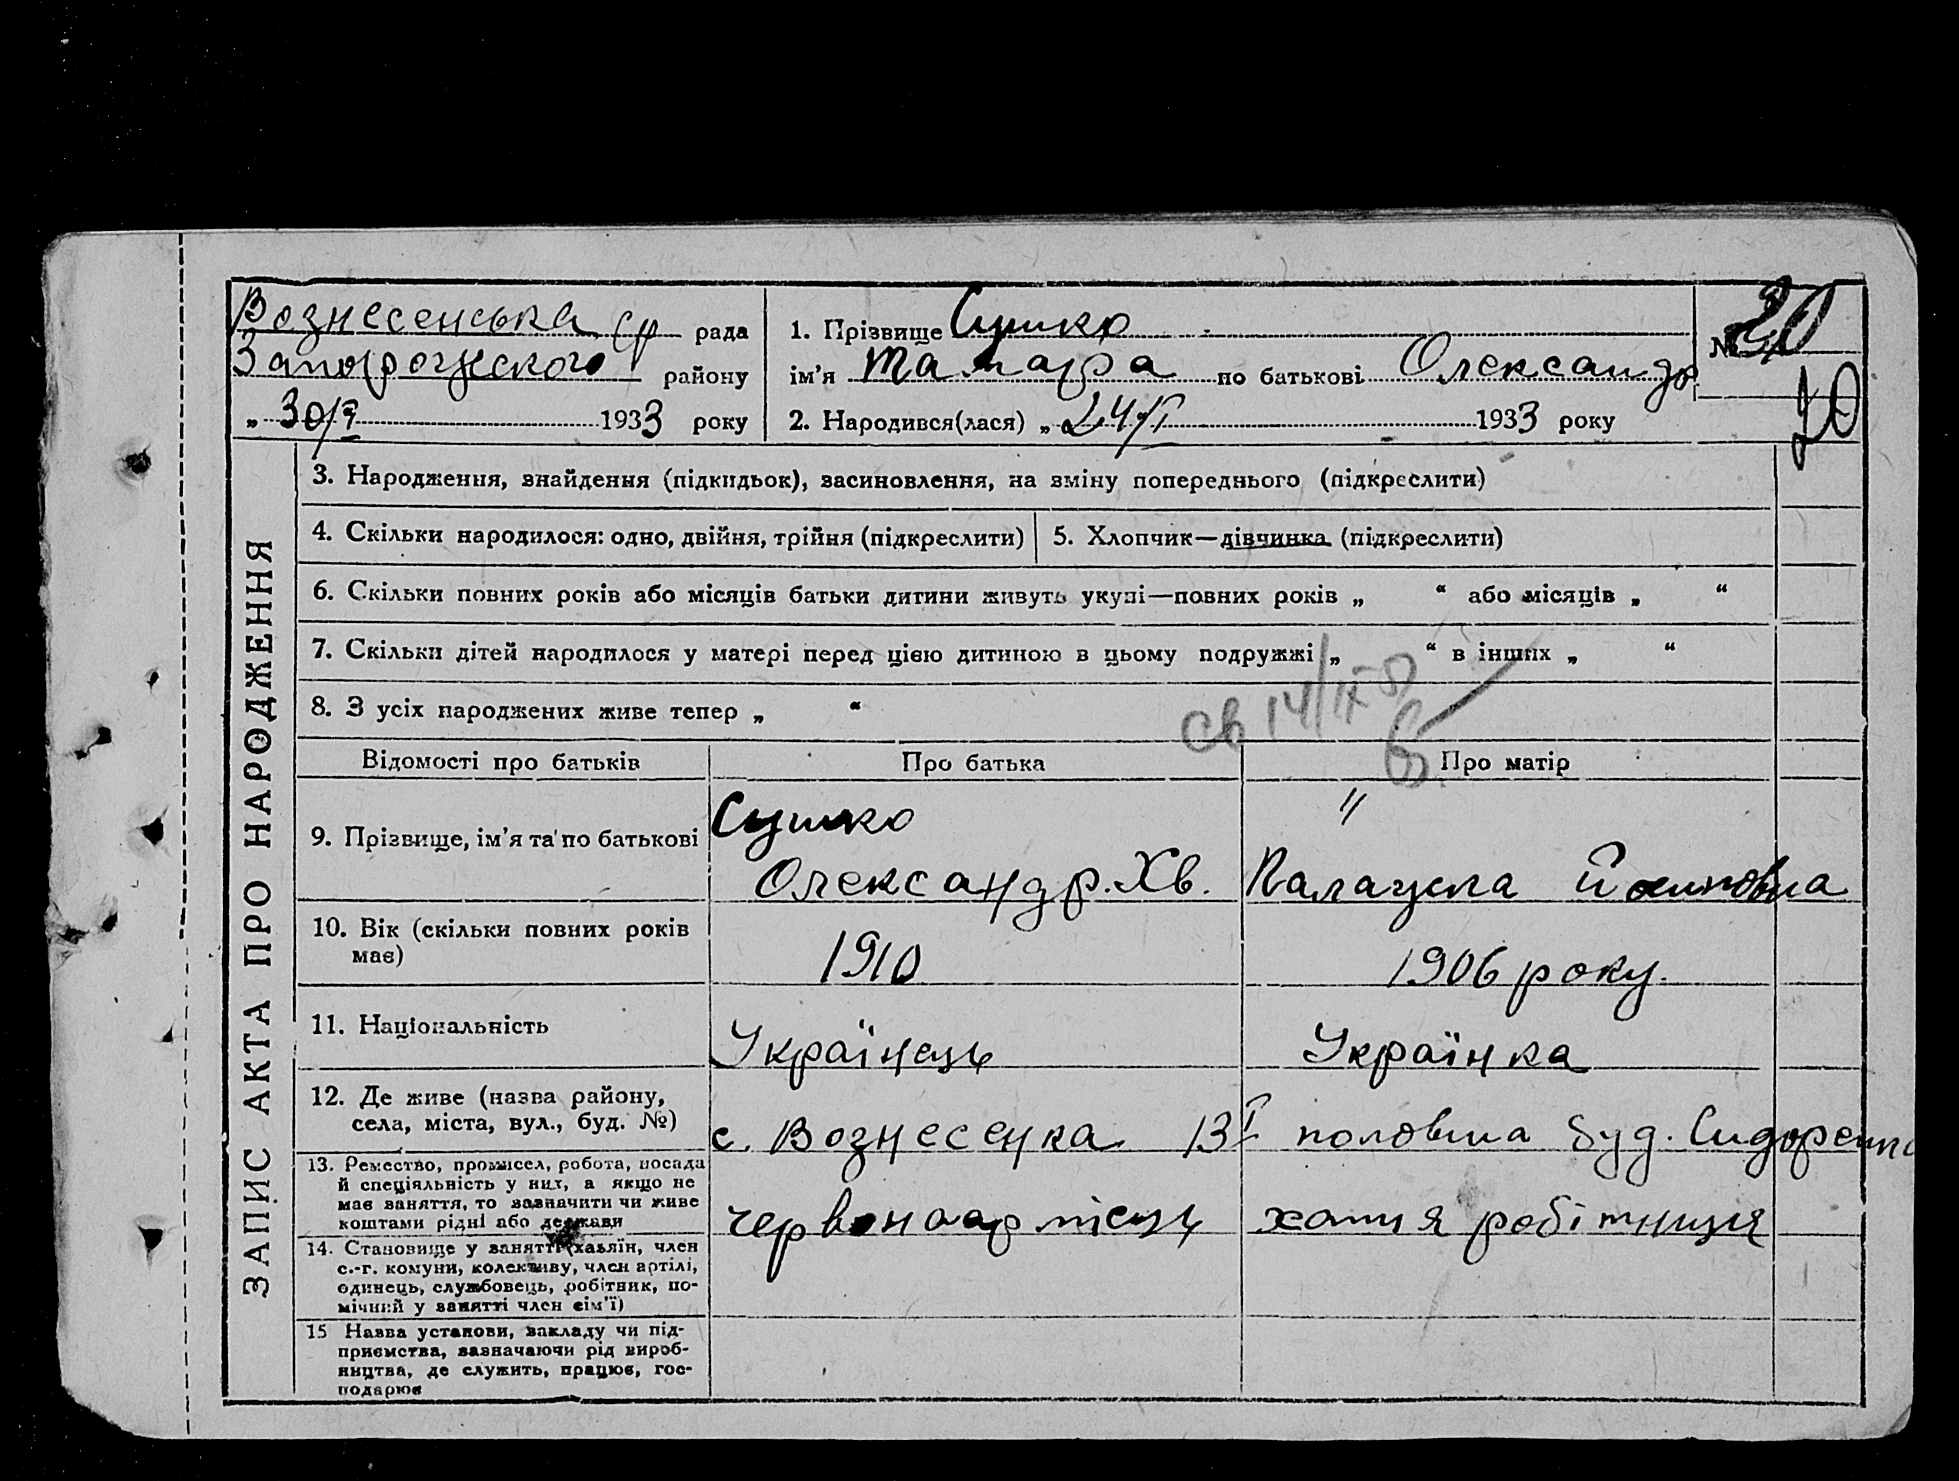 Вознесенська ср рада
Запорожского району
„ 30/I 1933 року
1. Прізвище Сушко
ім’я Тамара по батькові Олександр
2. Народився(лася) „ 24/I 1933 року
№ 20
20
ЗАПИС АКТА ПРО НАРОДЖЕННЯ
3. Народження, знайдення (підкидьок), засиновлення, на зміну попереднього (підкреслити)
4. Скільки народилося: одно, двійня, трійня (підкреслити)
5. Хлопчик—дівчинка (підкреслити)
6. Скільки повних років або місяців батьки дитини живуть укупі—повних років „ “ або місяців „ “
7. Скільки дітей народилося у матері перед цією дитиною в цьому подружжі „ “ в інших „ “
8. З усіх народжених живе тепер „ “
св 14/II
Відомості про батьків
Про батька
Про матір
9. Прізвище, ім’я та по батькові
Сушко
Олександр. Хв.
〃
Палажка
10. Вік (скільки повних років
має)
1910
1906 року.
11. Національність
Українець
Українка
12. Де живе (назва району,
села, міста, вул., буд. №)
с. Вознесенка 13 половина буд. Сидоренко
13. Ремество, промисел, робота, посада
й спеціяльність у них, а якщо не
має заняття, то зазначити чи живе
коштами рідні або держави
червоноармієць
хатня робітниця
14. Становище у занятті (хазяїн, член
с.-г. комуни, колективу, член артілі,
одинець, службовець, робітник, по-
мічний у занятті член сім’ї)
15 Назва установи, закладу чи під-
приємства, зазначаючи рід вироб-
ництва, де служить, працює, гос-
подарює